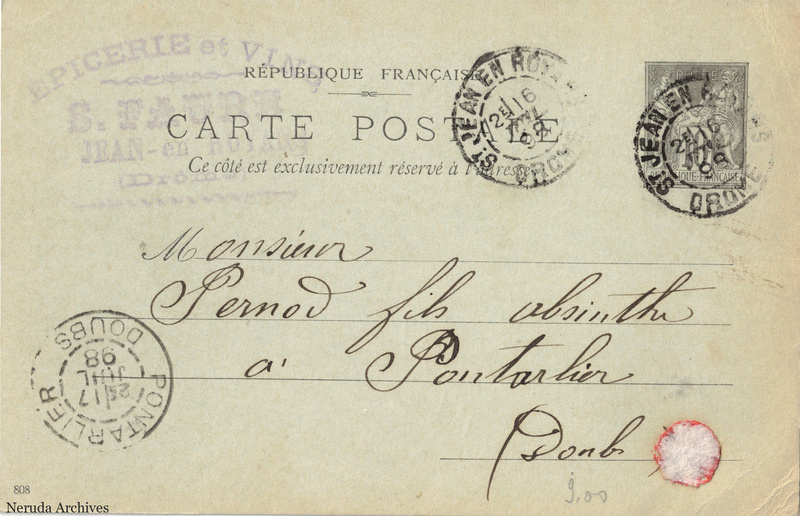 EPICERIE et VINS
S. FAURE
JEAN-en ROYANS
(Drôme)
RÉPUBLIQUE FRANÇAISE
CARTE POSTALE
Ce côté est exclusivement réservé à l'adresse
ST JEAN EN ROYANS
2E 16
JUIL
98
DROME
ST JEAN EN ROYANS
2E 16
JUIL
98
DROME
RÉPUBLIQUE FRANÇAISE
Monsieur
Pernod fils absinthe
à Pontarlier
(Doubs
PONTARLIER
17
JUIL
98
DOUBS
9,00
808
Neruda Archives